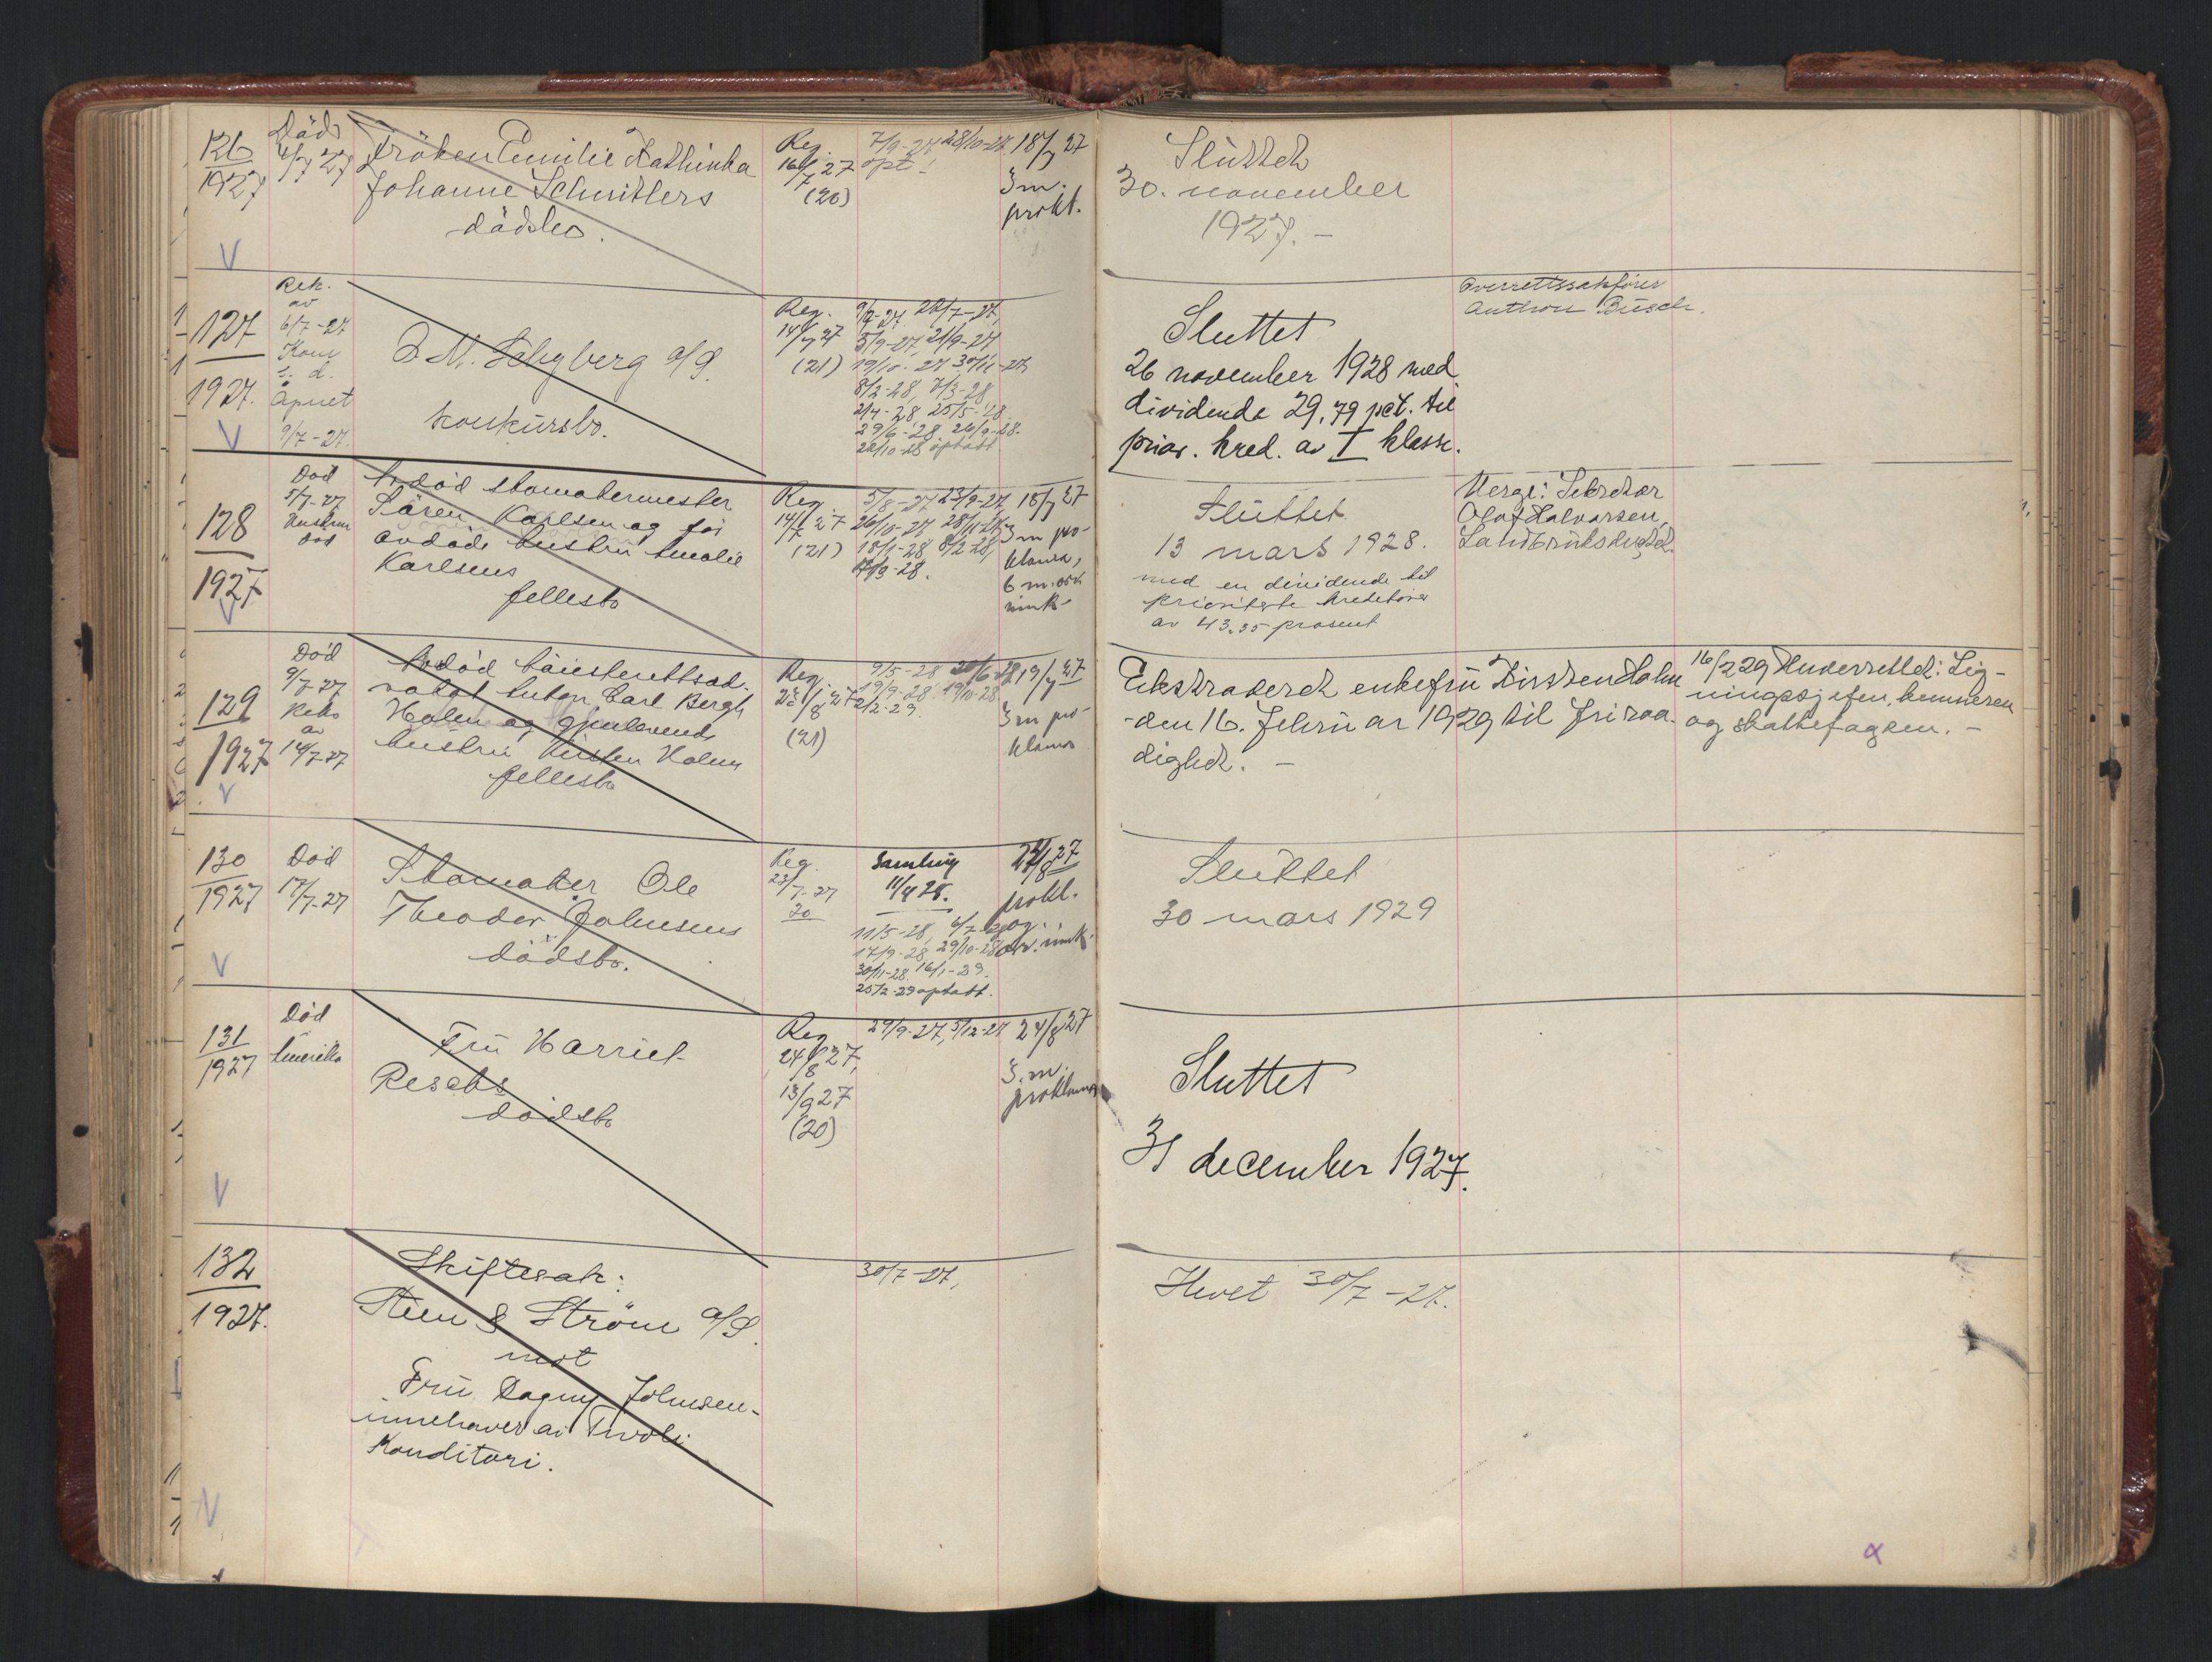 126
1927
Död
4/7 27
Fröken Emilie Kathinka
Johanne Schnitlers
dödsbo.
Reg.
16/7 27
(20)
7/9-27 28/10-27
opt.
18/7 27
3 m.
prokl.
Sluttet
30. november
1927. -
127
1927.
Rek.
av
6/7-27
Konk
s. d.
Åpnet
9/7-27.
konkursbo.
Reg.
14/7 27
(21)
9/7-27. 28/7-27,
5/9-27, 21/9-27
19/10-27 30/11-27,
8/2-28, 7/3-28
2/4-28 25/5-28.
29/6-28. 26/9-28.
22/10-28 optatt
Sluttet
26 november 1928 med
dividende 29,79 pct. til
prior. kred. av I klasse.
Overrettssakfører
Anthon Büsch.
128
1927
Död
5/7-27
Hustru
död
Avdöd skomakermester
Sören Karlsen og för
avdöde hustru Amalie
Karlsens
fellesbo
Reg.
14/7 27
(21)
5/8-27 23/9-27,
26/10-27 28/11-27,
18/1-28 8/2 28,
7/3-28.
18/7 27
3 m pro-
klama,
6 m. ark
innk-
Sluttet
13 mars 1928.
med en dividende til
prioriterte kreditorer
av 43.35 prosent
Verge: Sekretær
Olaf Halvorsen,
129
1927
Död
9/7-27
Rekv
av
14/7-27
Avdöd höiesterettsad-
vokat Anton Carl Bergh
Holm og gjenlevende
hustru Kirsten Holms
fellesbo
Reg.
(21)
9/5-28 20/6-28
19/9-28. 19/10-28
2/2-29.
19/7 27
3 m pro-
klama
Ekstradert enkefru Kirsten Holm
den 16. Februar 1929 til fri raa-
dighet. -
16/2 29 Underrettet: Lig-
ningssjefen, kemneren
og skattefogden. -
130
1927
Död
17/7-27
Skomaker Ole
Theodor Johnsens
dödsbo.
Reg.
23/7-27
20
Samling
11/4 28.
11/5-28, 6/7-28
17/9-28 29/10-28
30/11-28. 16/1-29.
25/2-29 optatt.
27/8 27
prokl.
og.
arv. innk.
Sluttet
30 mars 1929
131
1927
Död
Amerika
Fru Harriet
dödsbo
Reg
24/8 27,
13/9 27
(20)
29/9-27, 5/12-27
24/8 27
3. m.
proklama
Sluttet
31 december 1927.
132
1927.
Skiftesak:
Steen & Ström A/S.
mot
Fru Dagny Johnsen-
innehaver av Tivoli
Konditori.
30/7-27,
Hevet 30/7-27.